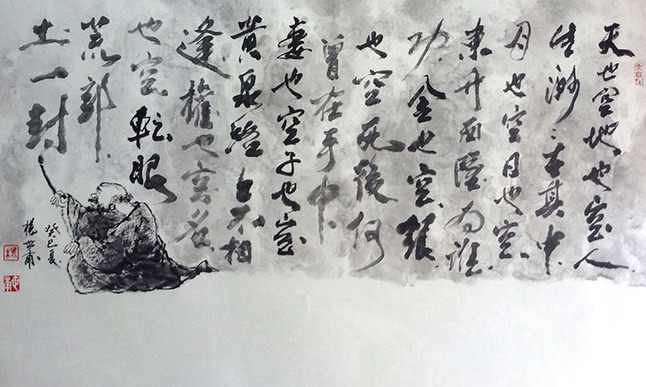 天也空地也空人
生渺々在其中
月也空日也空
東升西墜为誰
功金也空銀
也空死後何
曾在手中
妻也空子也空
黄泉路上不相
逢權也空名
也空轉眼
荒郊
土一封
癸巳夏